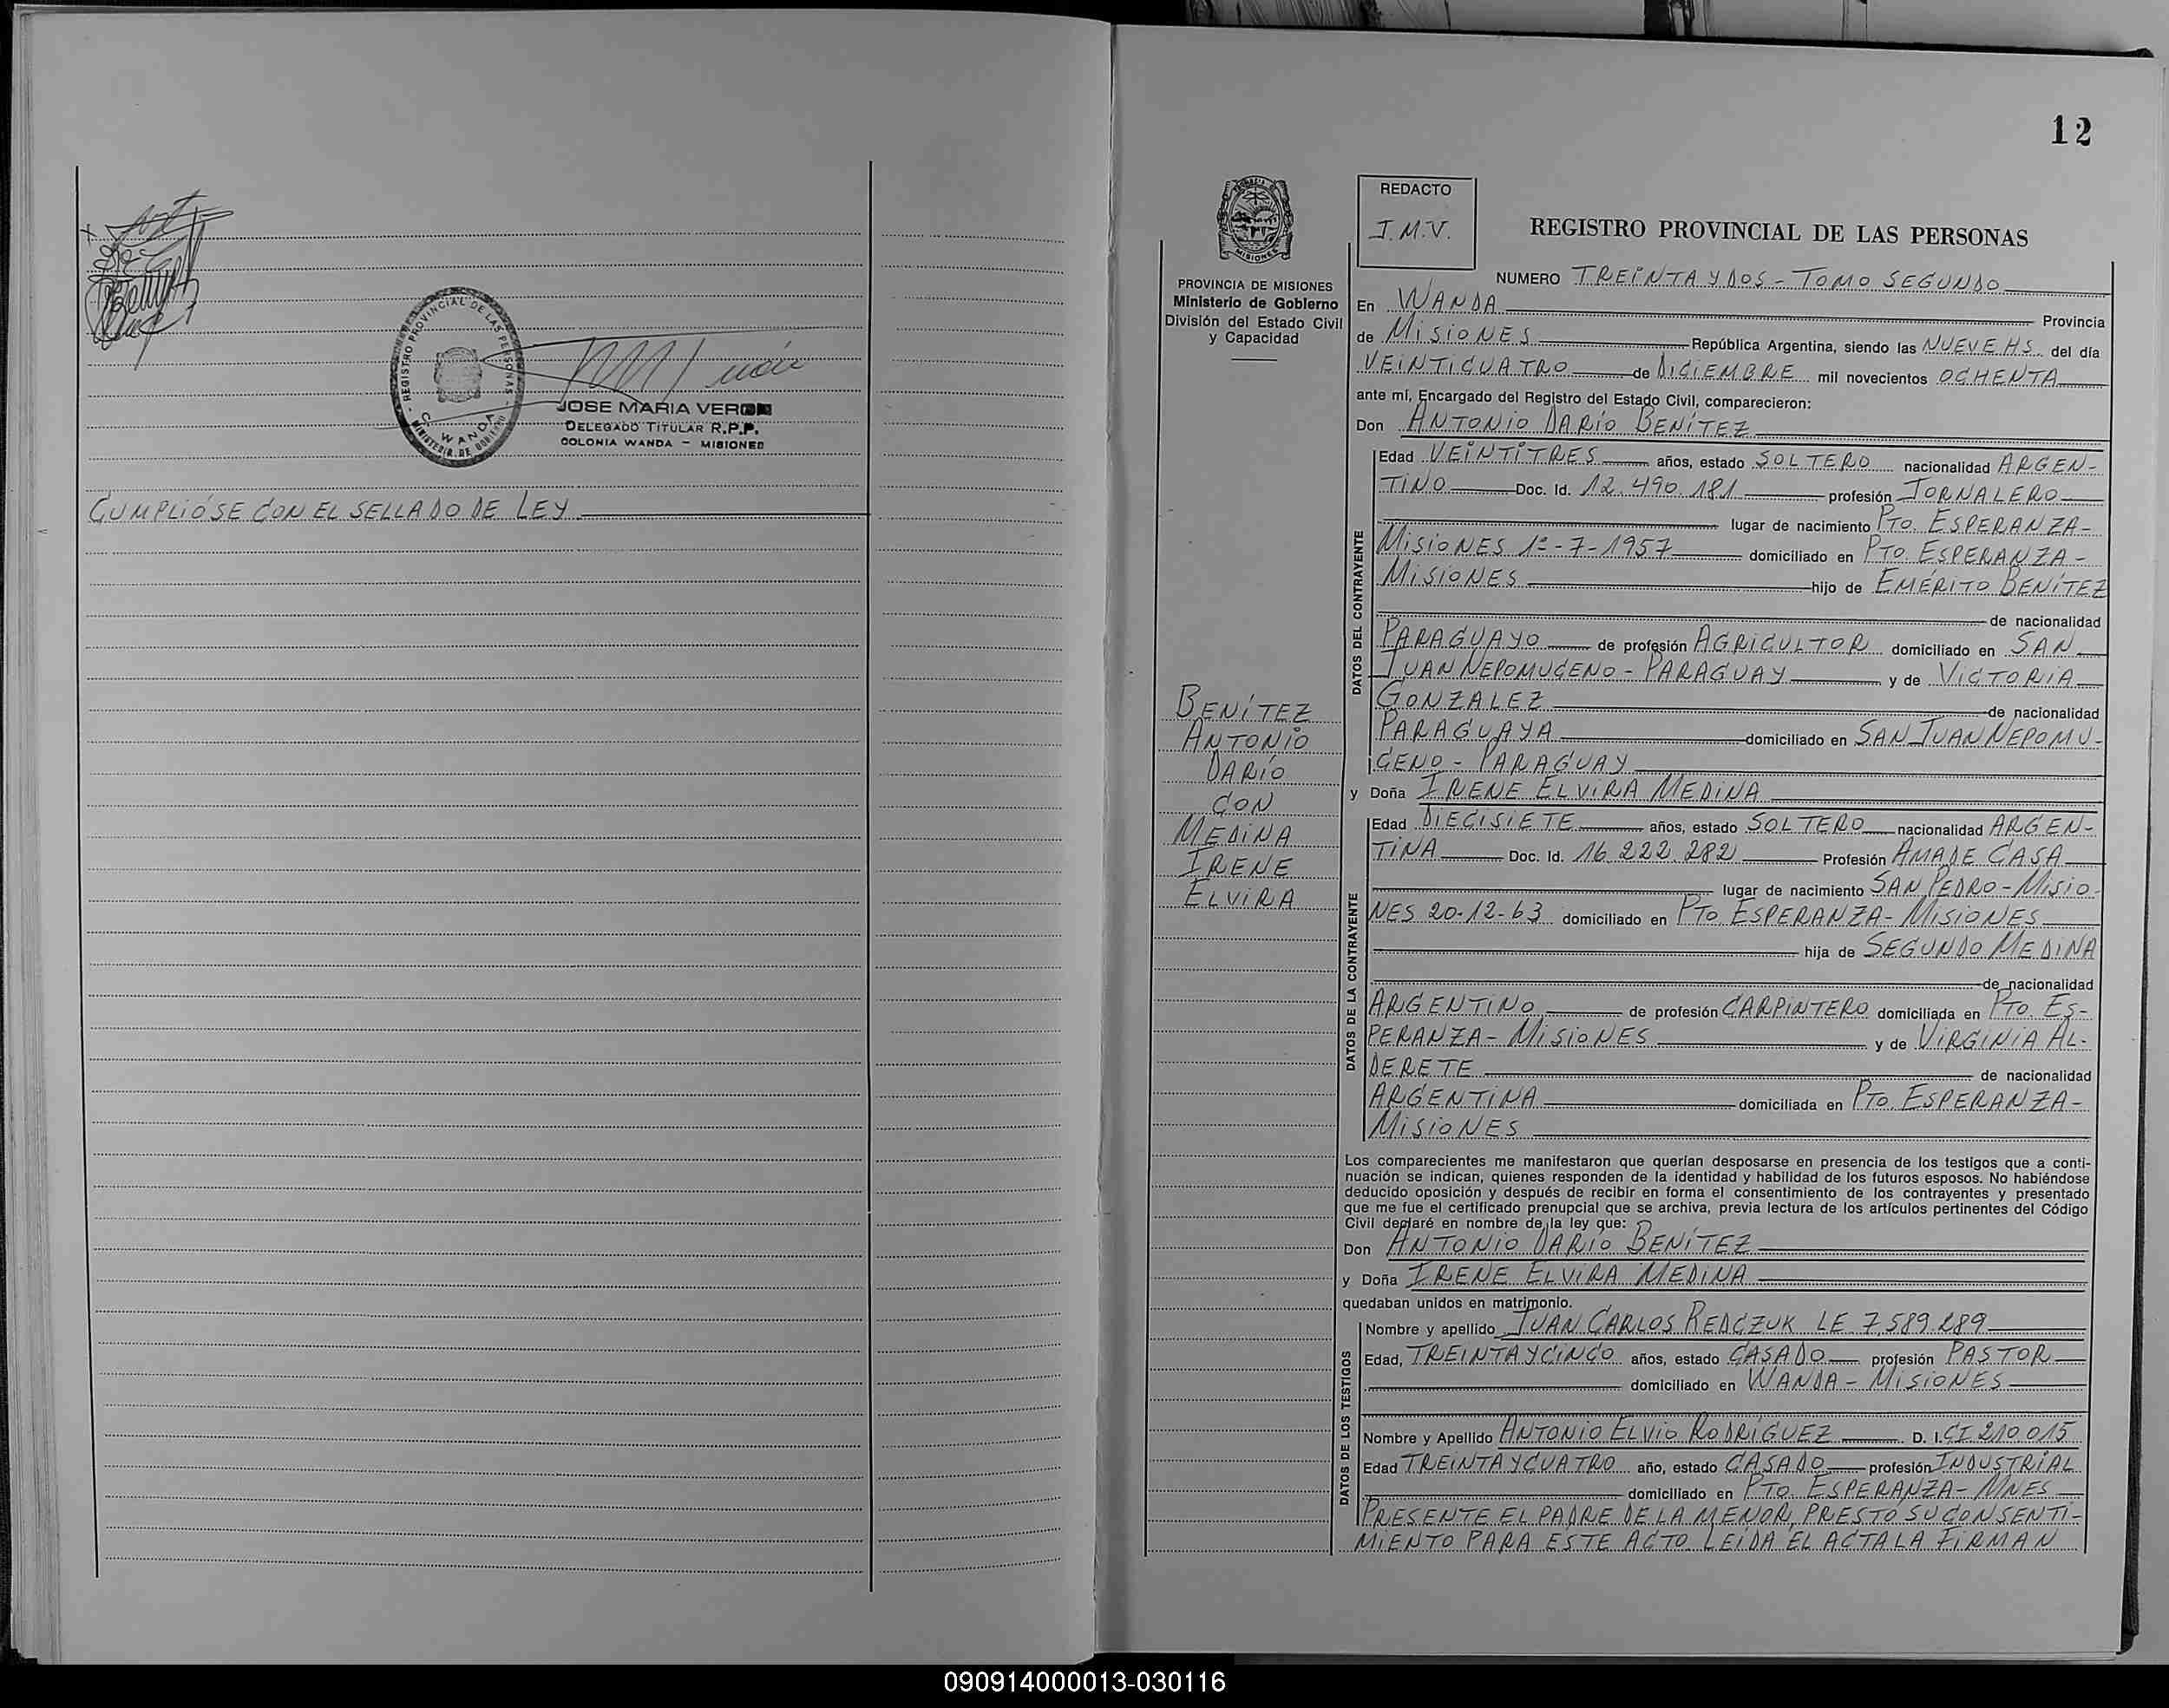 REGISTRO PROVINCIAL DE LAS PERSONAS
C. WANDA
JOSE MARIA VERON
DELEGADO TITULAR R.P.P.
COLONIA WANDA - MISIONES
CUMPLIÓSE CON EL SELLADO DE LEY
12
PROVINCIA DE MISIONES
Ministerio de Gobierno
División del Estado Civil
y Capacidad
BENÍTEZ
ANTONIO
DARÍO
CON
MEDINA
IRENE
ELVIRA
REDACTO
I.M.V.
REGISTRO PROVINCIAL DE LAS PERSONAS
NUMERO TREINTA Y DOS - TOMO SEGUNDO
En WANDA Provincia
de MISIONES República Argentina, siendo las NUEVE HS. del día
VEINTICUATRO de DICIEMBRE mil novecientos OCHENTA
ante mí, Encargado del Registro del Estado Civil, comparecieron:
Don ANTONIO DARÍO BENÍTEZ
DATOS DEL CONTRAYENTE
Edad VEINTITRES años, estado SOLTERO nacionalidad ARGEN-
TINO Doc. Id. 12.490.181 profesión JORNALERO
lugar de nacimiento PTO. ESPERANZA-
MISIONES 1º-7-1957 domiciliado en PTO. ESPERANZA-
MISIONES hijo de EMÉRITO BENÍTEZ
de nacionalidad
PARAGUAYO de profesión AGRICULTOR domiciliado en SAN
JUAN NEPOMUCENO - PARAGUAY y de VICTORIA
GONZALEZ de nacionalidad
PARAGUAYA domiciliado en SAN JUAN NEPOMU-
CENO - PARAGUAY
y Doña IRENE ELVIRA MEDINA
DATOS DE LA CONTRAYENTE
Edad DIECISIETE años, estado SOLTERO nacionalidad ARGEN-
TINA Doc. Id. 16.222.282 Profesión AMA DE CASA
lugar de nacimiento SAN PEDRO-MISIO-
NES 20-12-63 domiciliado en PTO. ESPERANZA-MISIONES
hija de SEGUNDO MEDINA
de nacionalidad
ARGENTINO de profesión CARPINTERO domiciliada en PTO. ES-
PERANZA-MISIONES y de VIRGINIA AL-
DERETE de nacionalidad
ARGENTINA domiciliada en PTO. ESPERANZA-
MISIONES
Los comparecientes me manifestaron que querían desposarse en presencia de los testigos que a conti-
nuación se indican, quienes responden de la identidad y habilidad de los futuros esposos. No habiéndose
deducido oposición y después de recibir en forma el consentimiento de los contrayentes y presentado
que me fue el certificado prenupcial que se archiva, previa lectura de los artículos pertinentes del Código
Civil declaré en nombre de la ley que:
Don ANTONIO DARÍO BENÍTEZ
y Doña IRENE ELVIRA MEDINA
quedaban unidos en matrimonio.
DATOS DE LOS TESTIGOS
Nombre y apellido JUAN CARLOS REDCZUK LE 7.589.289
Edad, TREINTA Y CINCO años, estado CASADO profesión PASTOR
domiciliado en WANDA - MISIONES
Nombre y Apellido ANTONIO ELVIO RODRÍGUEZ D. I. CI 210.015
Edad TREINTA Y CUATRO año, estado CASADO profesión INDUSTRIAL
domiciliado en PTO. ESPERANZA-MNES
PRESENTE EL PADRE DE LA MENOR, PRESTO SU CONSENTI-
MIENTO PARA ESTE ACTO. LEÍDA EL ACTA LA FIRMAN
090914000013-030116